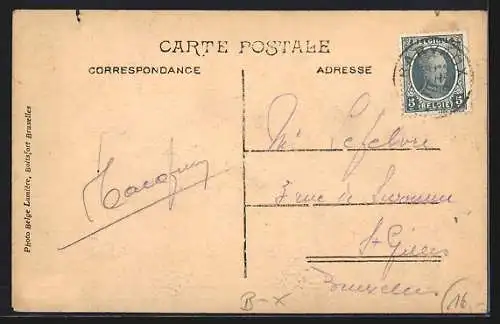 CARTE POSTALE
CORRESPONDANCE
ADRESSE
BELGIQUE
5 BELGIË 5
Photo Belge Lumière, Boitsfort Bruxelles
Mr Lefebvre
rue de
St Gilles
Bruxelles
B-X
16